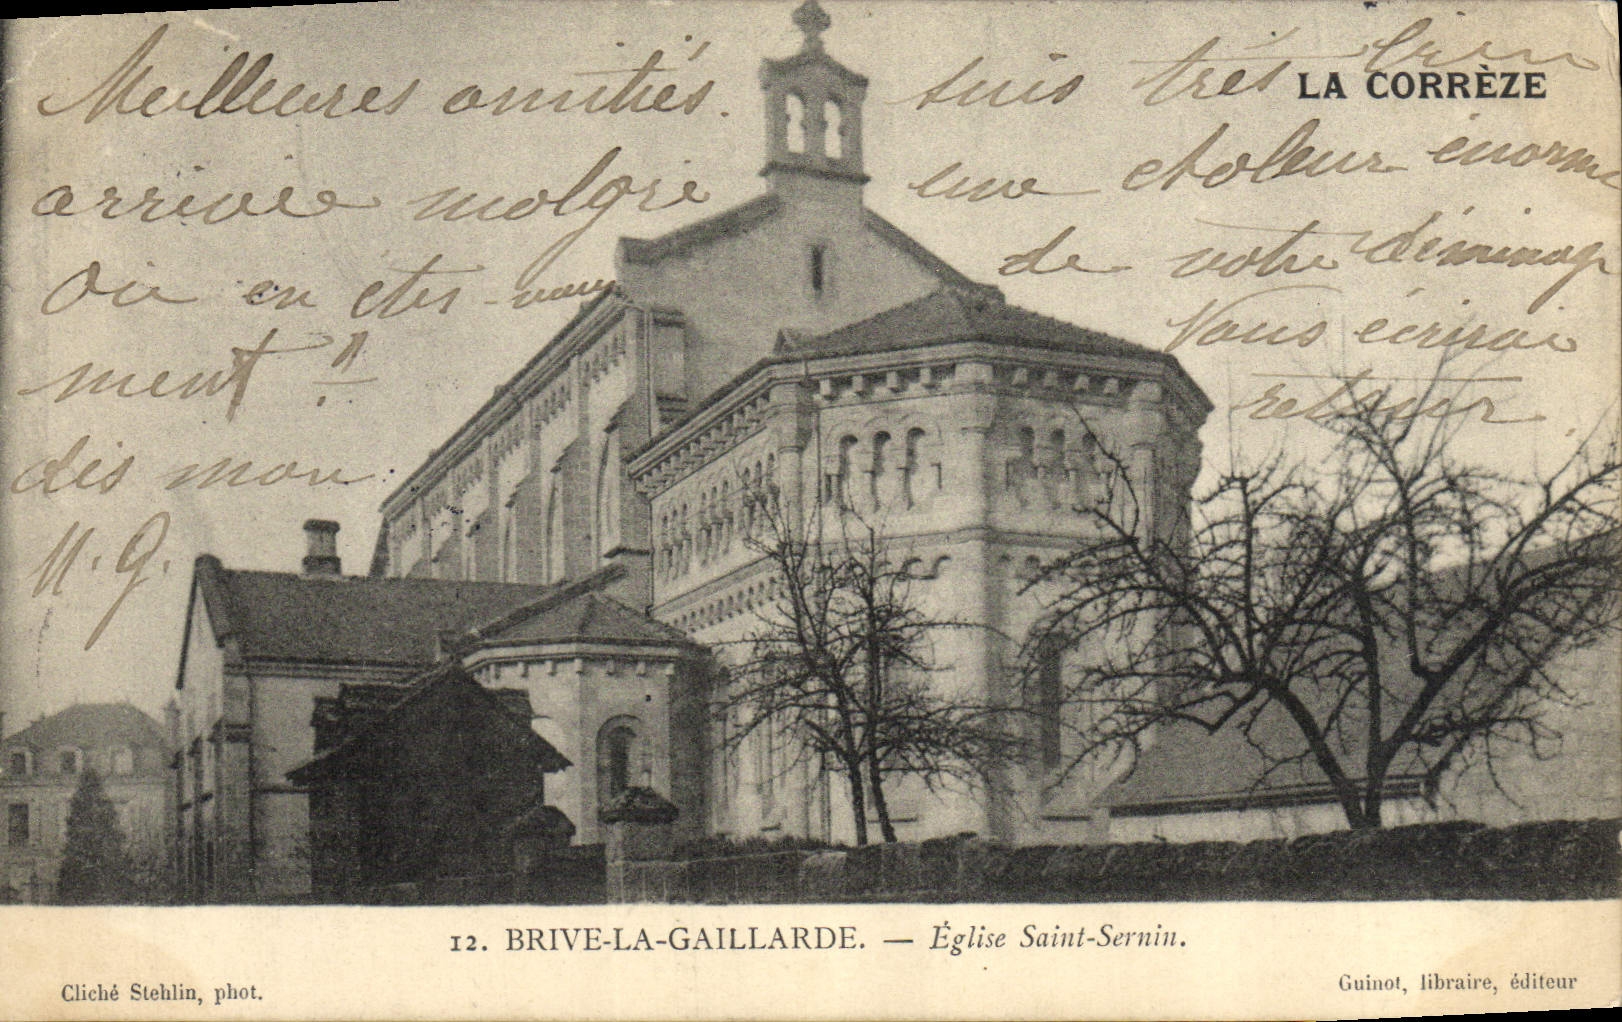 Meilleures amitiés. suis très bien
LA CORRÈZE
arrivée malgré une chaleur énorme
Où en êtes-vous de votre déménage
ment ? Vous écrirai
dès mon retour.
M. G.
12. BRIVE-LA-GAILLARDE. — Église Saint-Sernin.
Cliché Stehlin, phot.
Guinot, libraire, éditeur